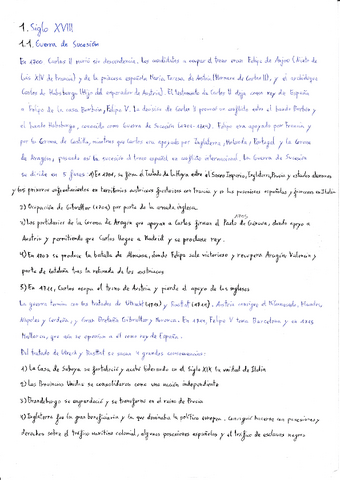 1. Siglo XVIII
1.1. Guerra de Sucesión
En 1700 Carlos II murió sin descendencia. Los candidatos a ocupar el trono eran Felipe de Anjou (Nieto de
Luis XIV de Francia) y de la princesa española María Teresa de Austria (Hermana de Carlos II), y el archiduque
Carlos de Habsburgo (Hijo del emperador de Austria). El testamento de Carlos II deja como rey de España
a Felipe de la casa Borbón, Felipe V. La decisión de Carlos II provocó un conflicto entre el bando Borbón y
el bando Habsburgo, conocido como Guerra de Sucesión (1701-1713). Felipe era apoyado por Francia y
por la Corona de Castilla, mientras que Carlos era apoyado por Inglaterra, Holanda, Portugal y la Corona
de Aragón, pasando así la sucesión al trono español un conflicto internacional. La Guerra de Sucesión
se divide en 5 fases: 1) En 1701, se firma el Tratado de La Haya entre el Sacro Imperio, Inglaterra, Prusia y estados alemanes
y los primeros enfrentamientos en territorios austriacos fronterizos con Francia y en las posesiones españolas y francesas en Italia
2) Ocupación de Gibraltar (1704) por parte de la armada inglesa.
3) Los partidarios de la Corona de Aragón que apoyan a Carlos firman el Pacto de Génova, 1705 donde apoyo a
Austria y permitiendo que Carlos llegue a Madrid y se proclame rey.
4) En 1707 se produce la batalla de Almansa, donde Felipe sale victorioso y recupera Aragón, Valencia y
parte de Cataluña tras la retirada de los austriacos
5) En 1711, Carlos ocupa el trono de Austria y pierde el apoyo de los ingleses
La guerra termina con los tratados de Utrecht (1713) y Rastatt (1714). Austria consigue el Milanesado, Flandes,
Nápoles y Cerdeña, y Gran Bretaña Gibraltar y Menorca. En 1714, Felipe V toma Barcelona y en 1715
Mallorca, que aún se oponían a él como rey de España.
Del tratado de Utrecht y Rastatt se sacan 4 grandes consecuencias:
1) La Casa de Saboya se fortaleció y acabó liderando en el Siglo XIX la unidad de Italia
2) Las Provincias Unidas se consolidaron como una nación independiente
3) Brandeburgo se engrandeció y se transformó en el reino de Prusia
4) Inglaterra fue la gran beneficiaria y la que dominaba la política europea. Consiguió hacerse con posesiones y
derechos sobre el tráfico marítimo colonial, algunas posesiones españolas y el tráfico de esclavos negros